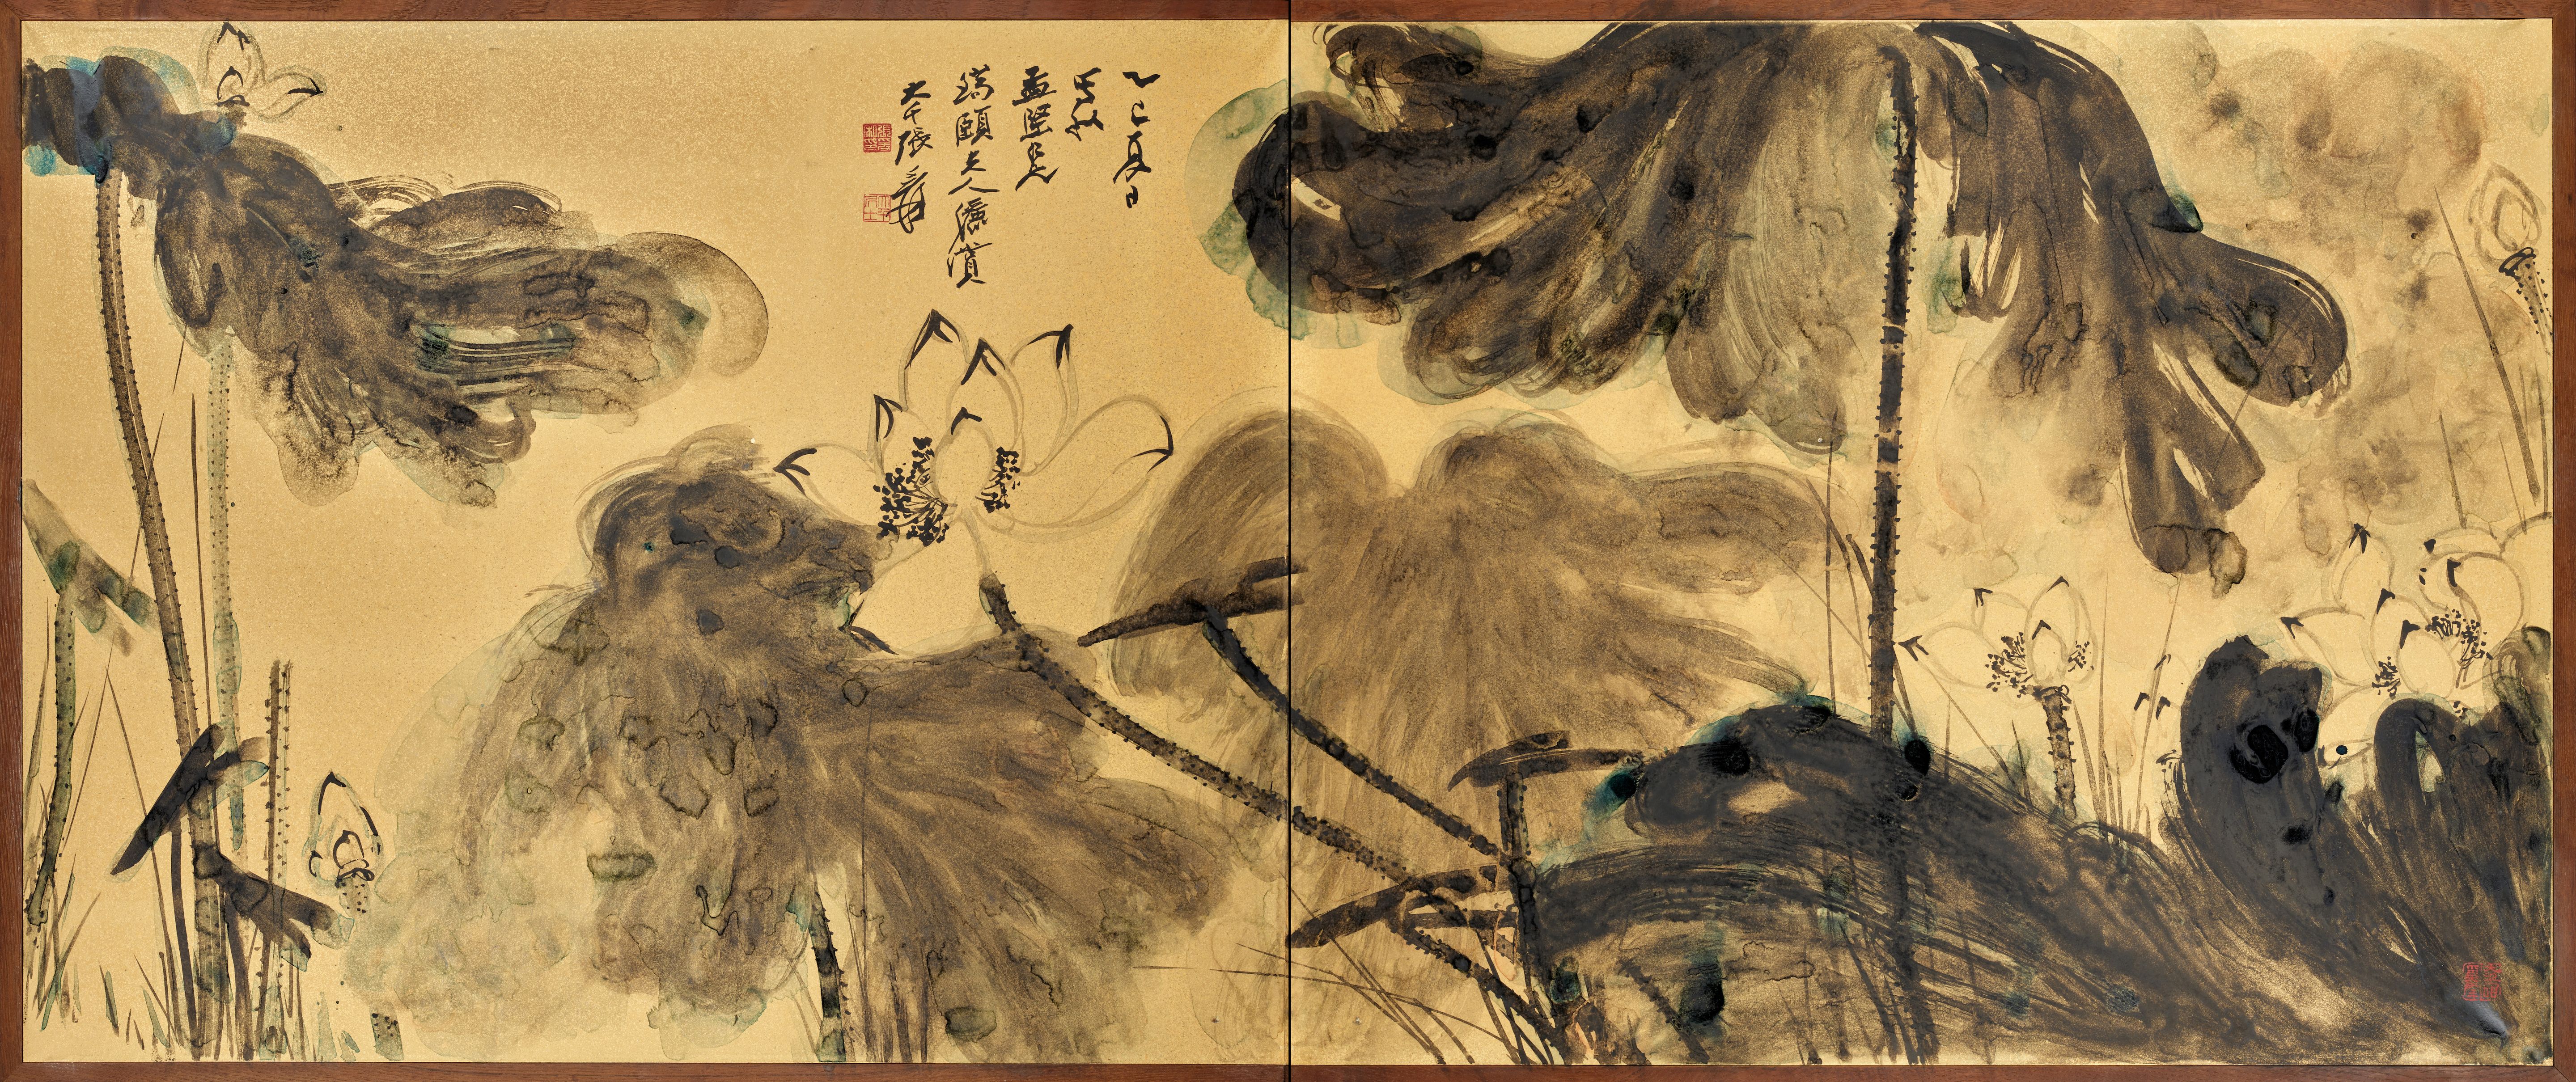 乙巳夏日
寫似
孟堅兄
瑞頤夫人儷賞
大千張爰